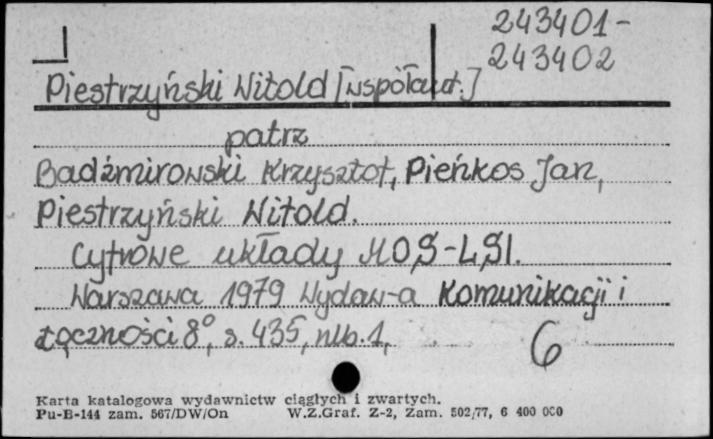 243401-
243402
Piestrzyński Witold [współaut.]
patrz
Badźmirowski Krzysztof, Pieńkos Jan,
Piestrzyński Witold.
Cyfrowe układy MOS-LSI.
Warszawa 1979 Wydaw-a Komunikacji i
Łączności 8°, s. 435, nlb. 1,
6
Karta katalogowa wydawnictw ciągłych i zwartych.
Pu-B-144 zam. 567/DW/On W.Z.Graf. Z-2, Zam. 502/77, 6 400 000